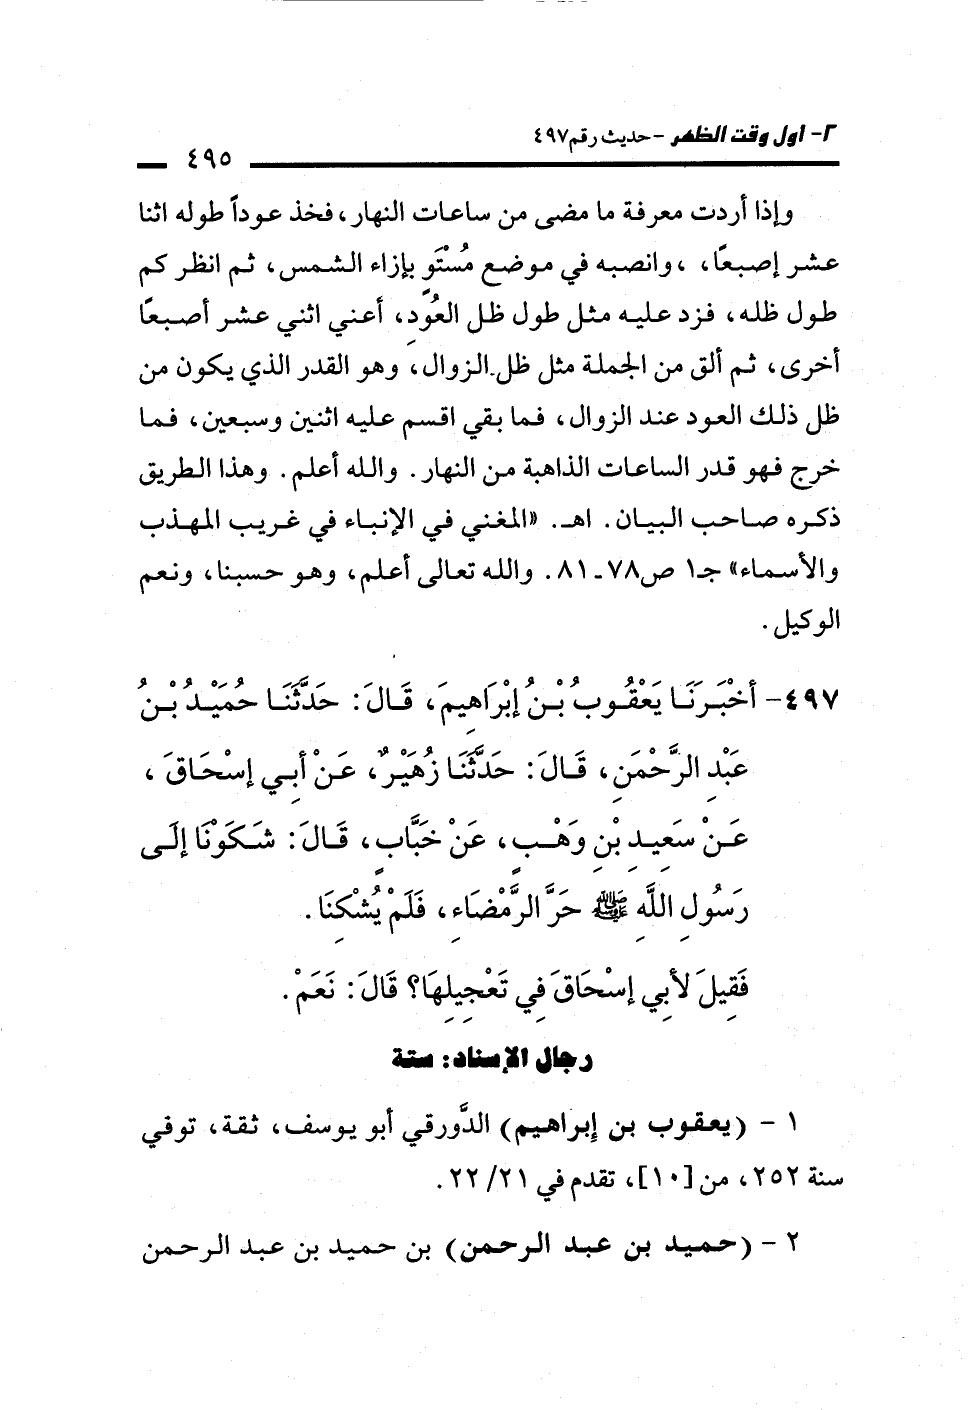 ٢- أول وقت الظهر - حديث رقم ٤٩٧
٤٩٥
وإذا أردت معرفة ما مضى من ساعات النهار، فخذ عوداً طوله اثنا
عشر إصبعًا، ، وانصبه في موضع مُسْتَوٍ بإزاء الشمس، ثم انظر كم
طول ظله، فزد عليه مثل طول ظل العُودِ، أعني اثني عشر أصبعًا
أخرى، ثم ألق من الجملة مثل ظل الزوال، وهو القدر الذي يكون من
ظل ذلك العود عند الزوال، فما بقي اقسم عليه اثنين وسبعين، فما
خرج فهو قدر الساعات الذاهبة من النهار. والله أعلم. وهذا الطريق
ذكره صاحب البيان. اهـ. «المغني في الإنباء في غريب المهذب
والأسماء» جـ١ ص٧٨ـ٨١. والله تعالى أعلم، وهو حسبنا، ونعم
الوكيل.
٤٩٧- أَخْبَرَنَا يَعْقُوبُ بْنُ إِبْرَاهِيمَ، قَالَ: حَدَّثَنَا حُمَيْدُ بْنُ
عَبْدِ الرَّحْمَنِ، قَالَ: حَدَّثَنَا زُهَيْرٌ، عَنْ أَبِي إِسْحَاقَ ،
عَنْ سَعِيدِ بْنِ وَهْبٍ، عَنْ خَبَّابٍ، قَالَ: شَكَوْنَا إِلَى
رَسُولِ اللَّهِ ﷺ حَرَّ الرَّمْضَاءِ، فَلَمْ يُشْكِنَا.
فَقِيلَ لأَبِي إِسْحَاقَ فِي تَعْجِيلِهَا؟ قَالَ: نَعَمْ.
رجال الإسناد: ستة
١ - (يعقوب بن إبراهيم) الدَّورقي أبو يوسف، ثقة، توفي
سنة ٢٥٢، من [١٠]، تقدم في ٢١/ ٢٢.
٢ - (حميد بن عبد الرحمن) بن حميد بن عبد الرحمن